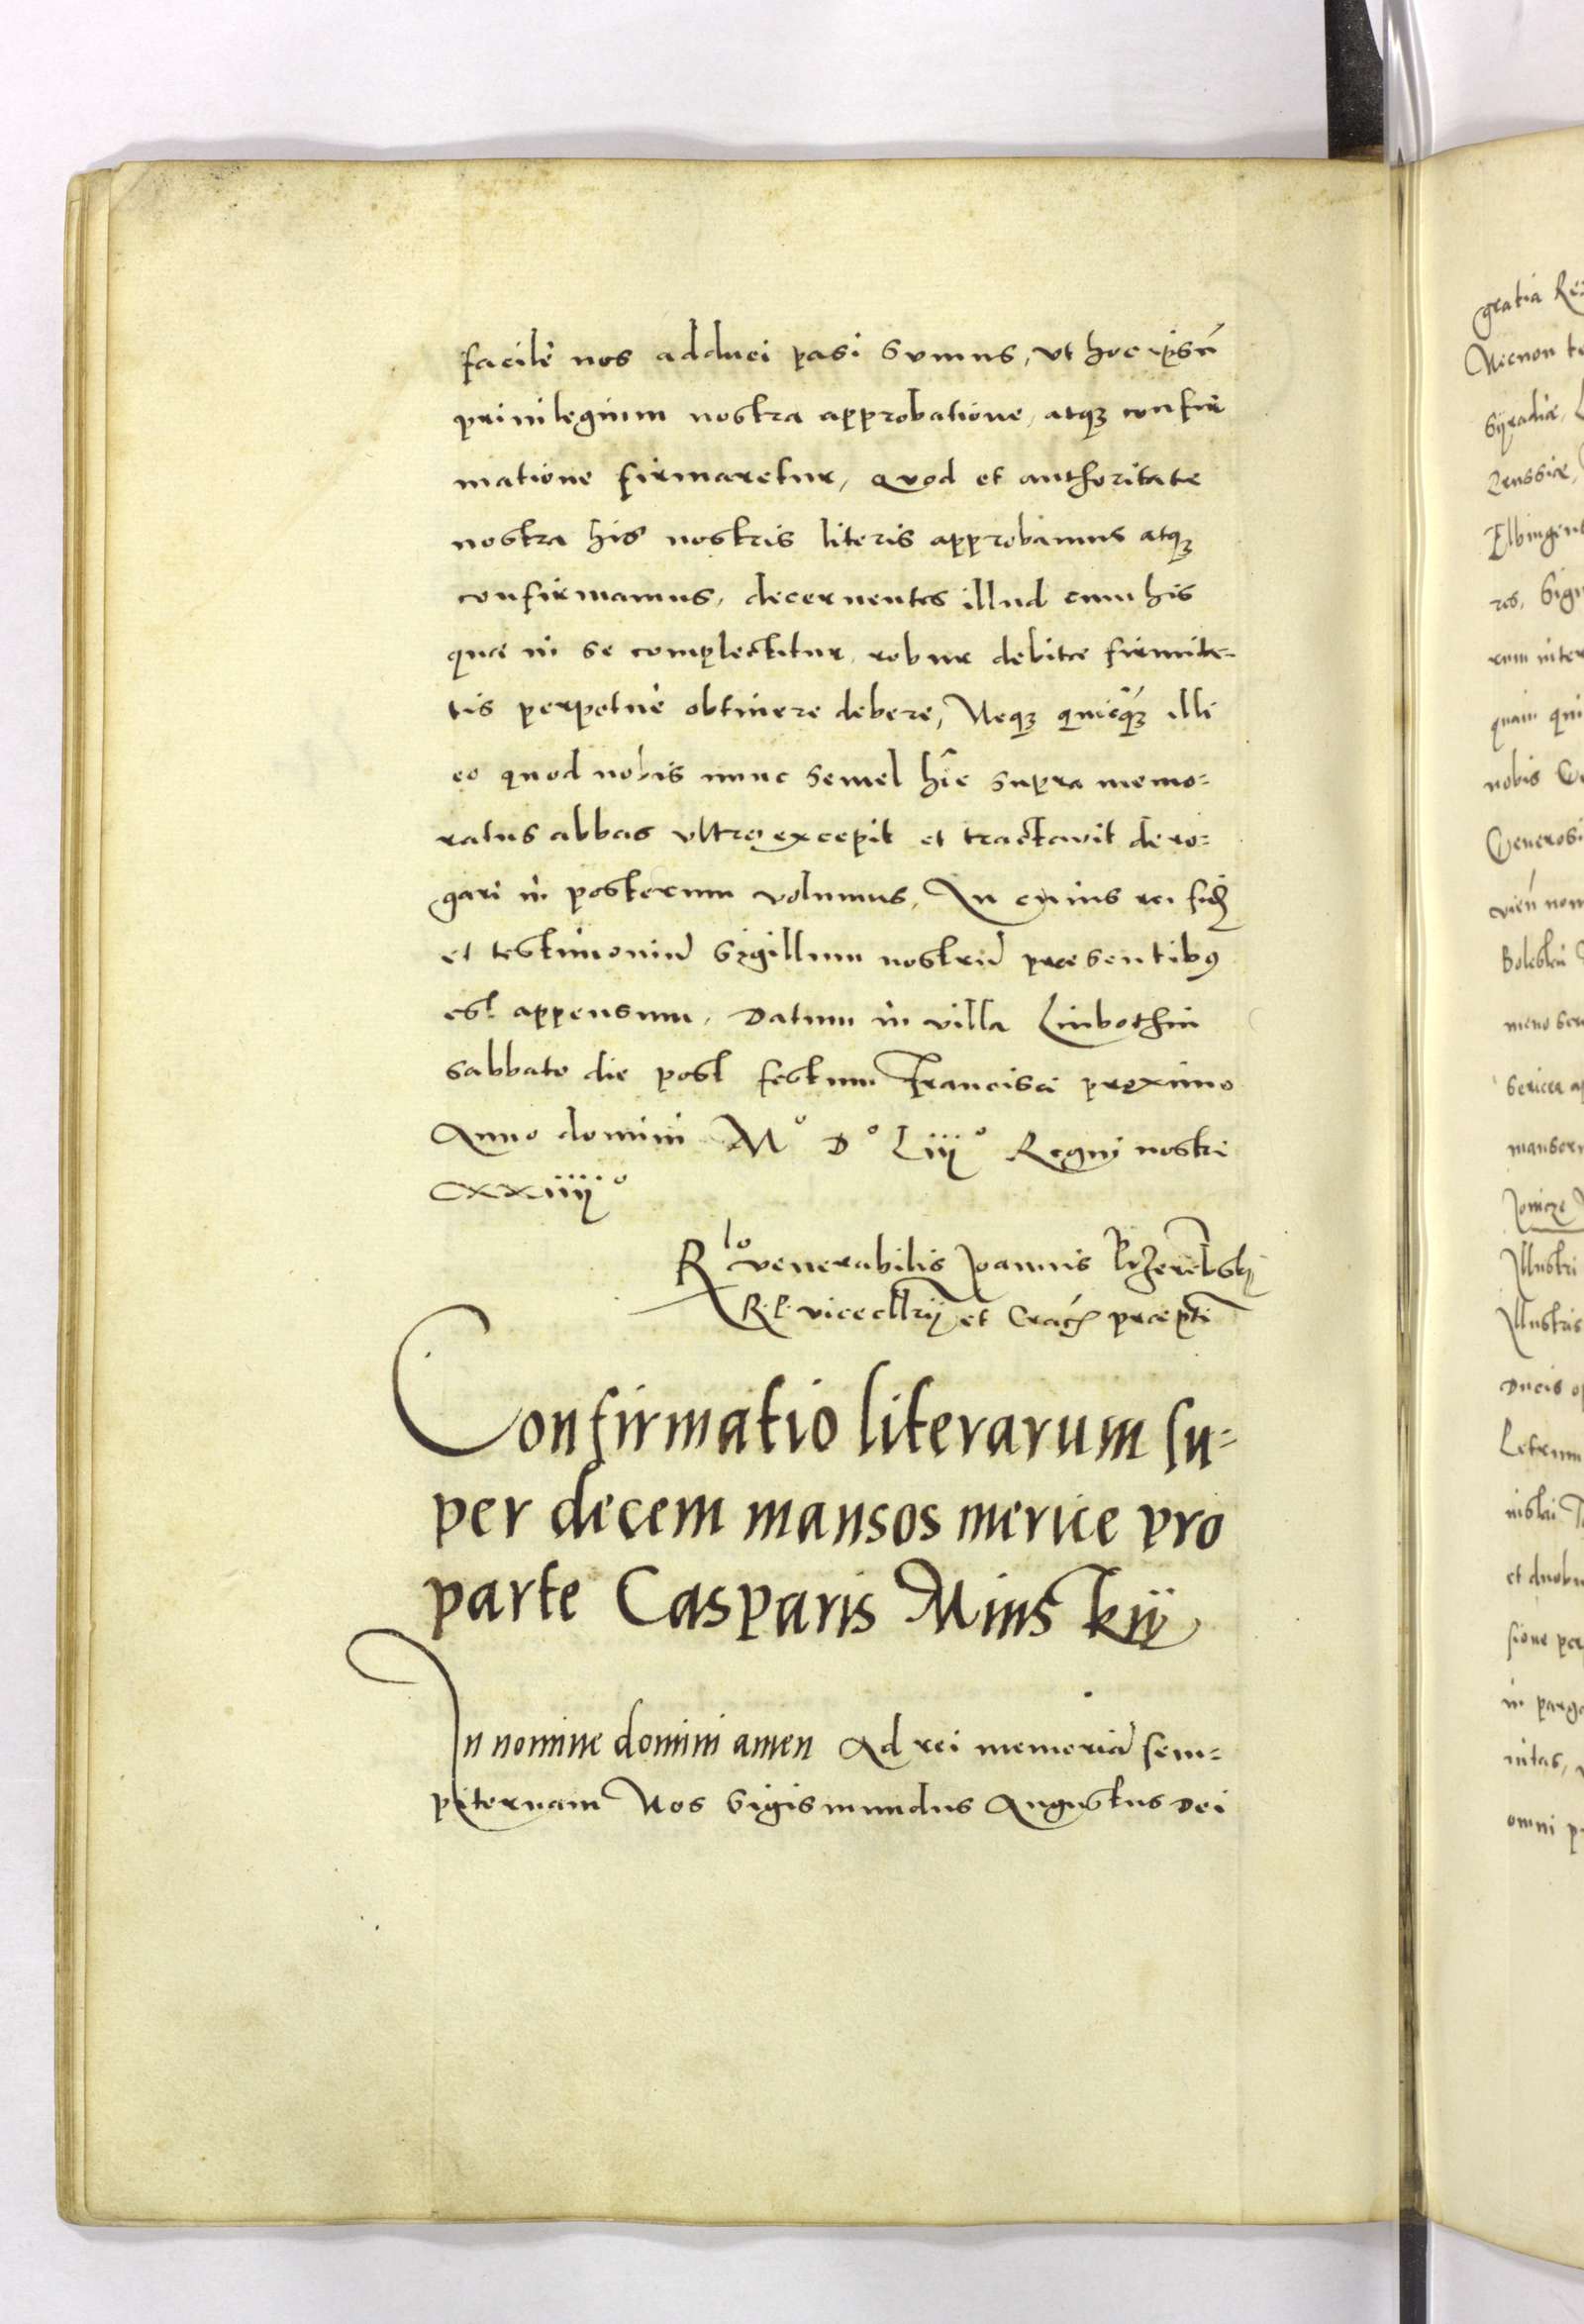 facile nos adduci pasi sumus, ut hoc ipsũ
privilegium nostra approbatione, atq3 confir
matione firmaretur, quod et authoritate
nostra his nostris literis approbamus atq3
confirmamus, decernentes illud cum his
quæ in se complectitur, robur debitæ firmita-
tis perpetuè obtinere debere, Neq3 quicq̃3 illi
eo quod nobis nunc semel hîc supra memo=
ratus abbas ultro excepit et tractavit dero=
gari in posterum volumus, In cuius rei fidẽ
et testimoniũ sigillum nostrũ præsentib9
est appensum, Datum in villa Liubothin
sabbato die post festum Francisci proximo
Anno domini Mº Dº Liijº Regni nostri
xxiiijº
Rlo venerabilis Joannis Przerẽbsky
R. P. vicecllrij et Crac̃ præpti
Confirmatio literarum su=
per decem mansos mericæ pro
parte Casparis Minskij
In nomine domini amen Ad rei memoriã sem=
piternam Nos Sigismundus Augustus Dei
gratia
Necnon
Syradiæ,
Prussiæ,
nobis
quam
vieñ
Illustri
Illustris
Ducis
sione
omni